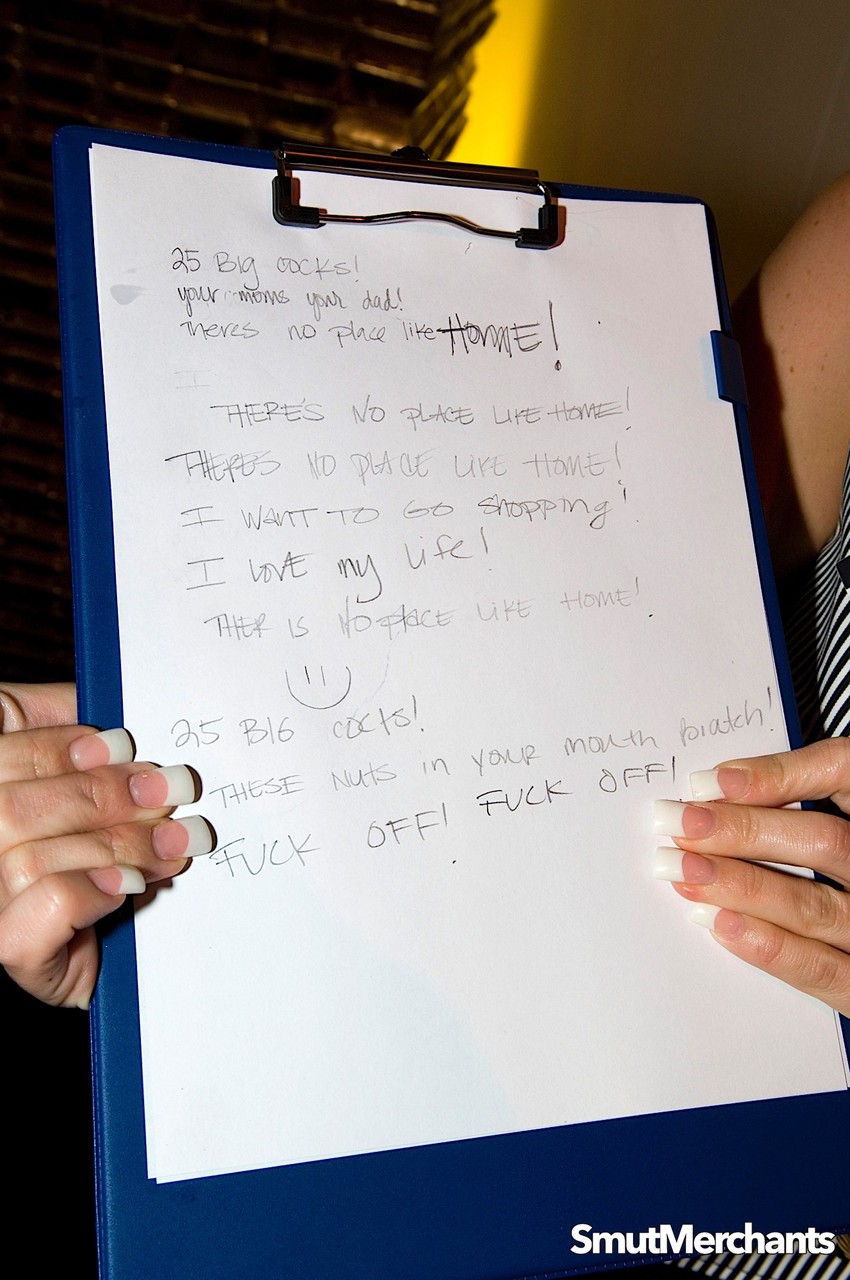 25 Big cocks!
your moms your dad!
Theres no place like HOME!
I
THERE'S NO PLACE LIKE HOME!
THERES NO PLACE LIKE HOME!
I WANT TO GO shopping!
I LOVE my Life!
THER IS NO PLACE LIKE HOME!
25 BIG cocks!
THESE NUTS in your mouth biatch!
FUCK OFF! FUCK OFF!
SmutMerchants